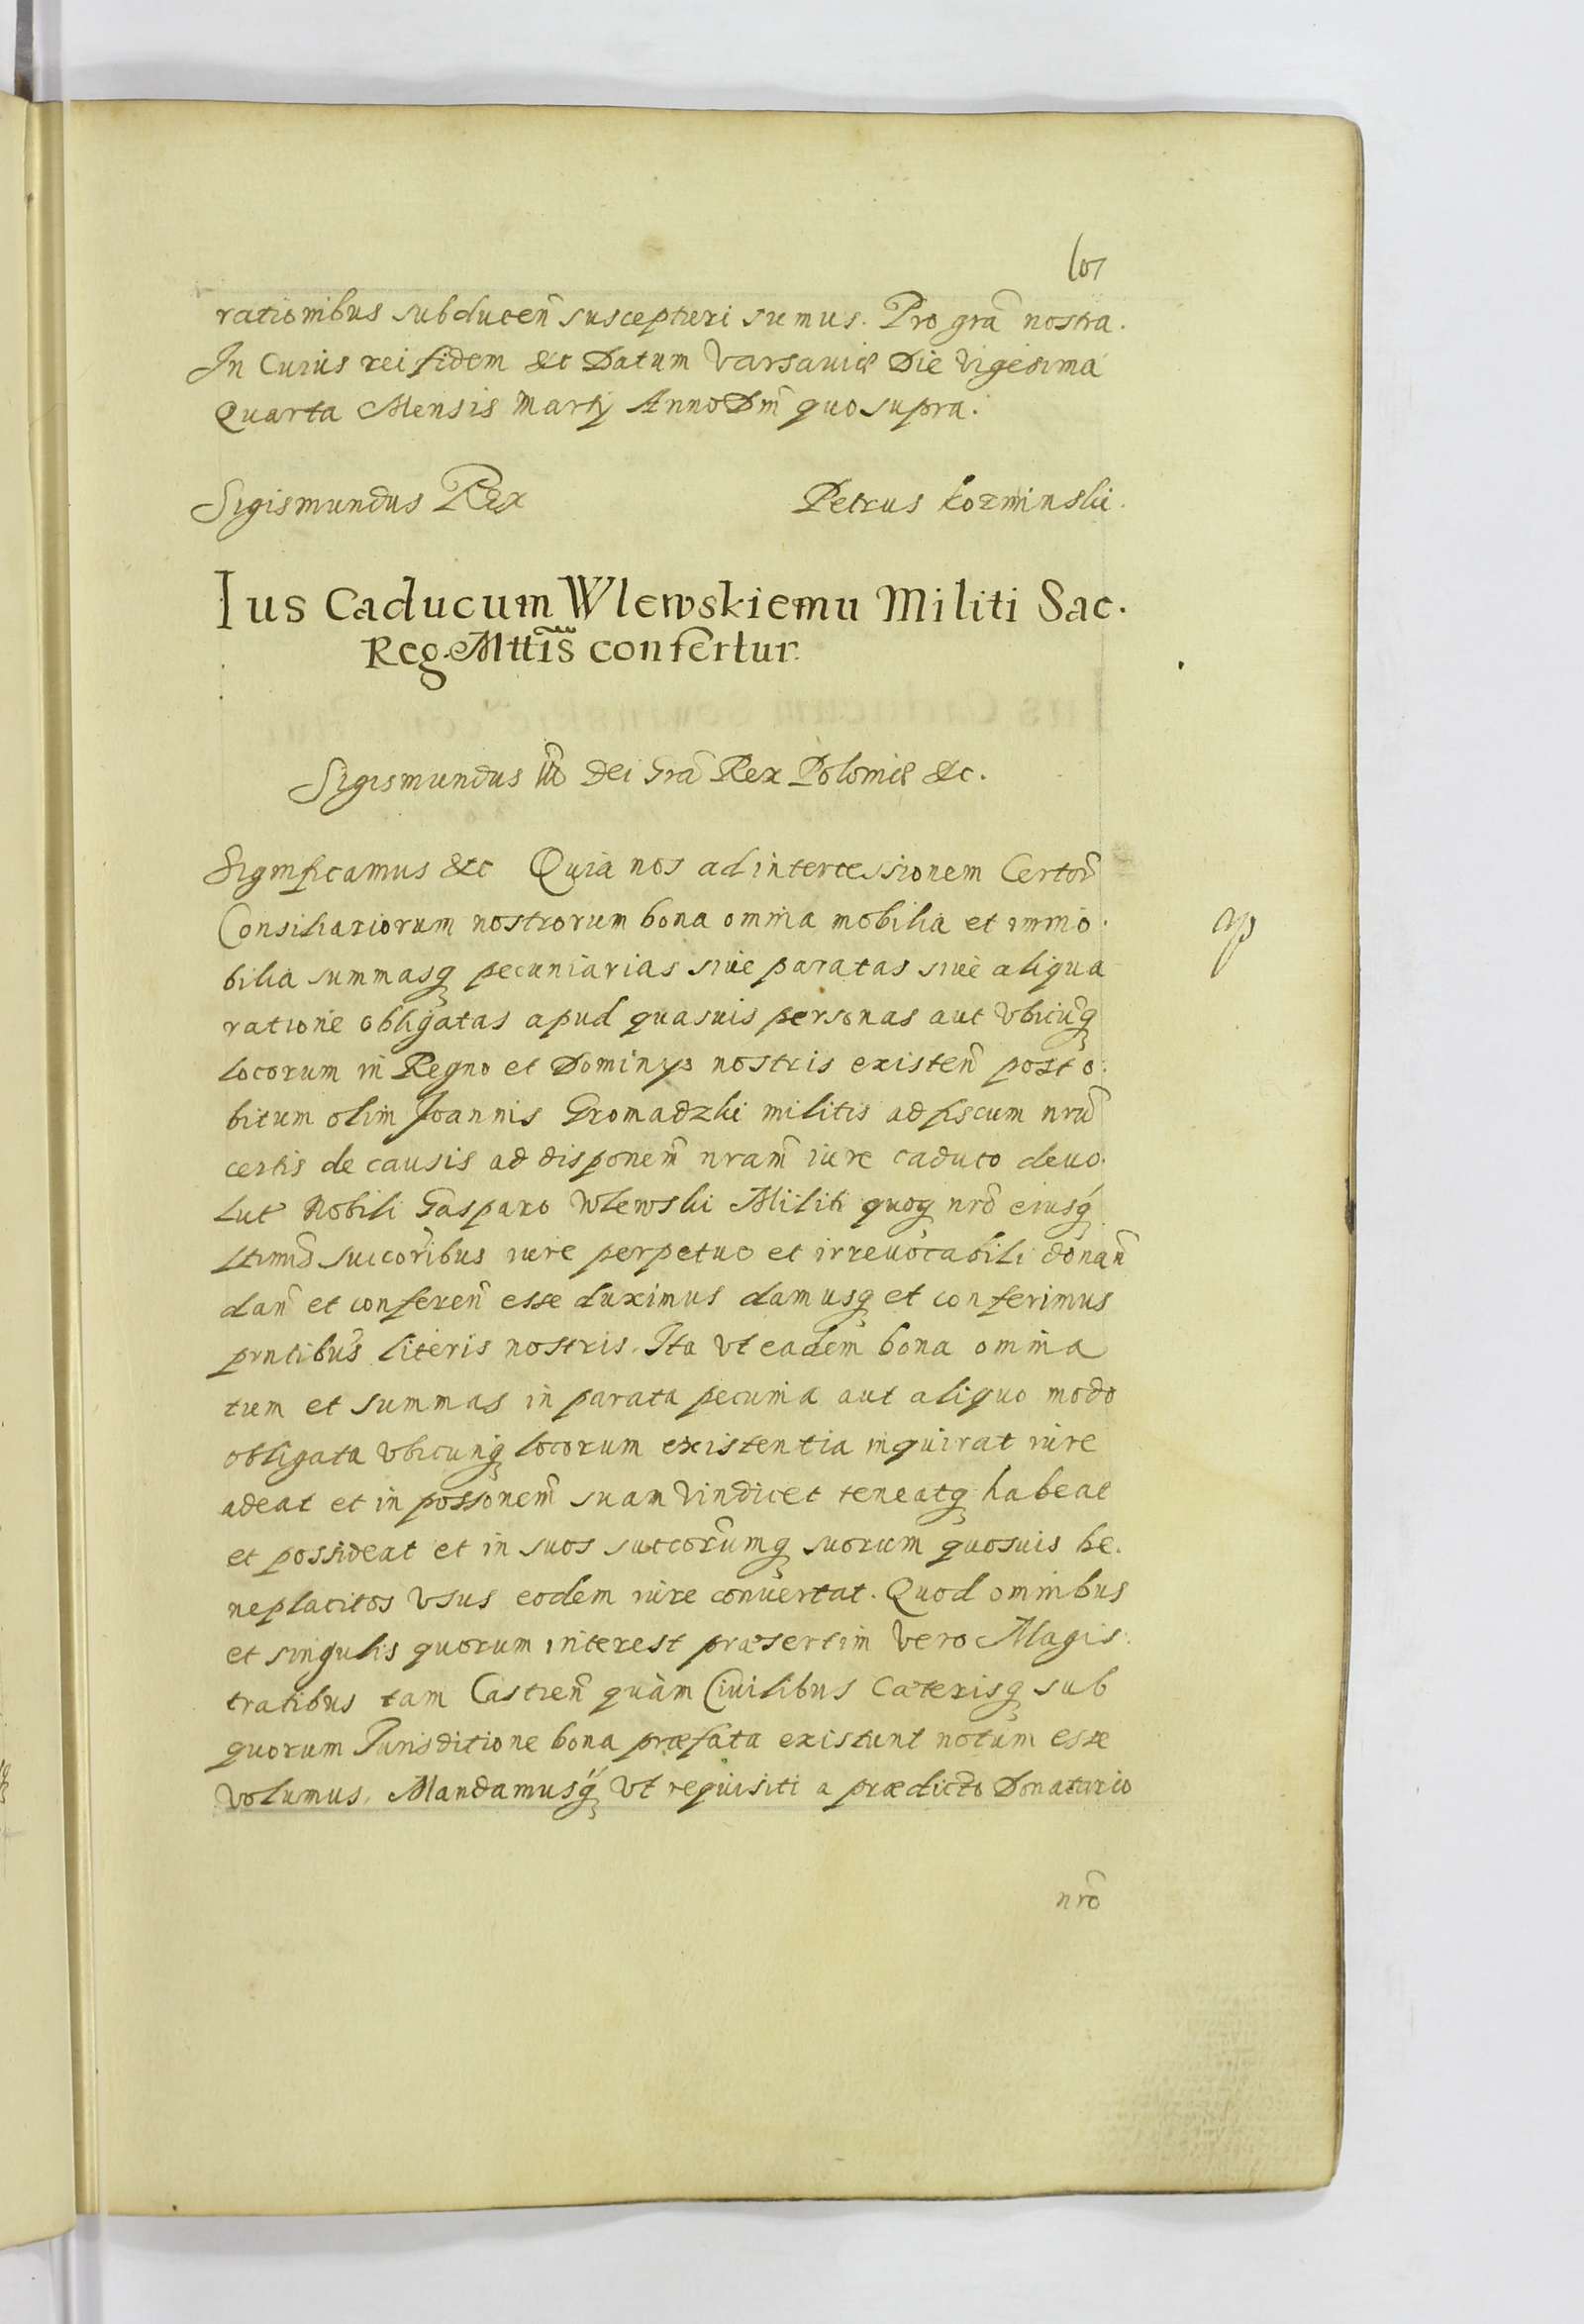 107
rationibus subducen̄ suscepturi sumus. Pro grã nostra.
In Cuius rei fidem &c Datum Varsauiæ Die Vigesima
Quarta Mensis Martij Anno Dm̃ quo supra.
Sigismundus Rex Petrus Kozminski.
Ius Caducum Wlewskiemu Militi Sac.
Reg. Mttis confertur.
Sigismundus III Dei Grã Rex Poloniæ &c.
Significamus &c Quia nos ad intercessionem Certor̃
Consiliariorum nostrorum bona omnia mobilia et immo.
bilia summasq pecuniarias siue paratas siue aliqua
ratione obligatas apud quasuis personas aut vbicũq
locorum in Regno et Dominys nostris existen̄ post o.
bitum olim Joannis Gromadzki militis ad fiscum nrũ
certis de causis ad disponem̃ nram̃ iure caduco deuo.
lut Nobili Gasparo Wlewski Militi quoq nrõ eiusq
ltimis succoribus iure perpetuo et irreuocabili donan̄
dan̄ et conferen̄ esse duximus damusq et conferimus
prntibus literis nostris. Ita vt eadem bona omnia
tum et summas in parata pecunia aut aliquo modo
obligata vbicunq locorum existentia inquirat iure
adeat et in possonem̃ suam vindicet teneatq habeat
et possideat et in suos succorumq suorum quosuis be.
neplacitos vsus eodem iure conuertat. Quod omnibus
et singulis quorum interest præsertim vero Magis.
tratibus tam Castren̄ quàm Ciuilibus Cæterisq sub
quorum Iurisditione bona præfata existunt notum esse
volumus. Mandamusq vt requisiti a prædicto Donatario
nrõ